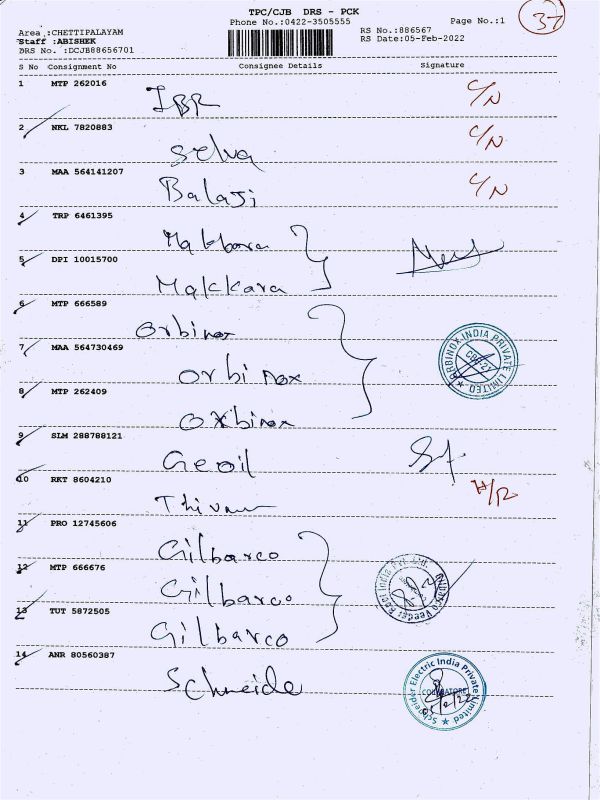 TPC/CJB DRS - PCK
Phone No.:0422-3505555
Page No.:1
37
Area :CHETTIPALAYAM
Staff :ABISHEK
DRS No. :DCJB88656701
RS No.:886567
RS Date:05-Feb-2022
S No Consignment No Consignee Details Signature
1 MTP 262016
IBR C/N
2 NKL 7820883
Selva C/N
3 MAA 564141207
Balaji C/N
4 TRP 6461395
Makkara
5 DPI 10015700
Makkara
6 MTP 666589
Orbinox
7 MAA 564730469
Orbinox
ORBINOX INDIA PRIVATE LIMITED
CBE-21
8 MTP 262409
Orbinox
9 SLM 288788121
Geoil
10 RKT 8604210
11 PRO 12745606
Gilbarco
12 MTP 666676
Gilbarco
Gilbarco Veeder Root India Pvt. Ltd.
13 TUT 5872505
Gilbarco
14 ANR 80560387
Schneide
Schneider Electric India Private Limited
COIMBATORE
05/2/22